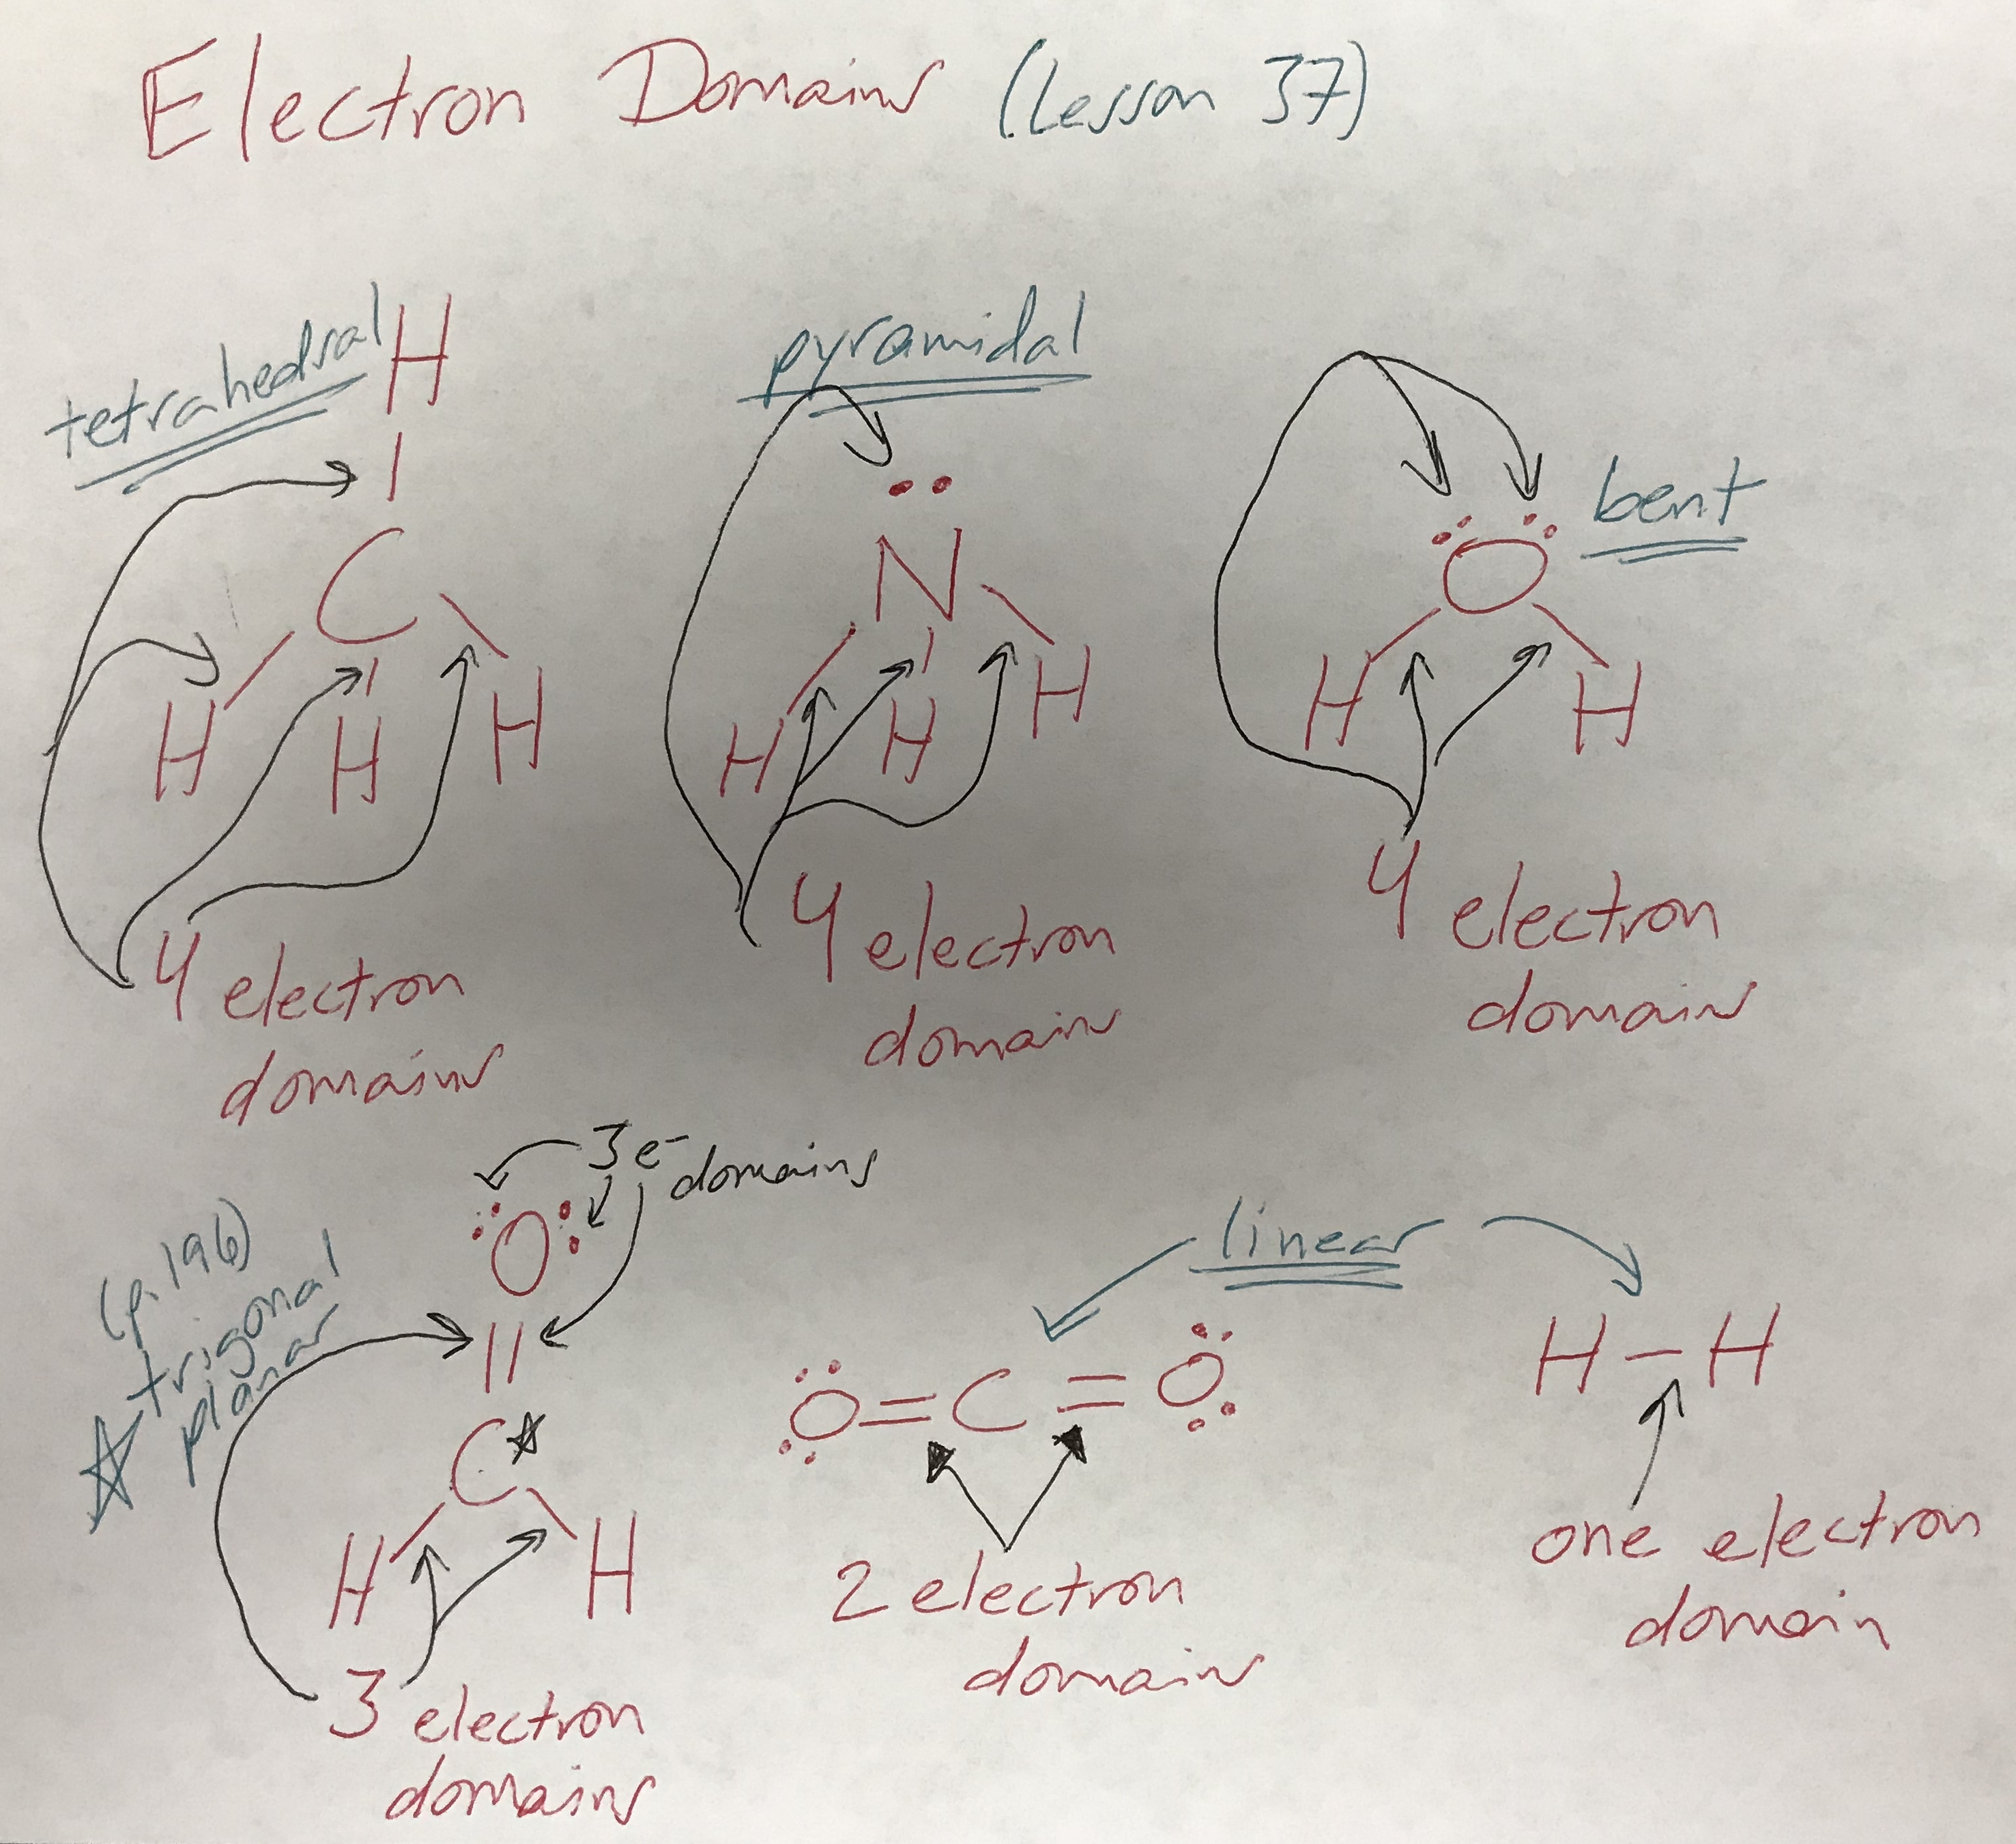 Electron Domains (Lesson 37)
tetrahedral
H
C
H H H
4 electron
domains
pyramidal
N
H H H
4 electron
domains
bent
O
H H
4 electron
domains
3 e- domains
(p. 196)
trigonal
planar
O
C
H H
3 electron
domains
linear
O=C=O
2 electron
domains
H-H
one electron
domain